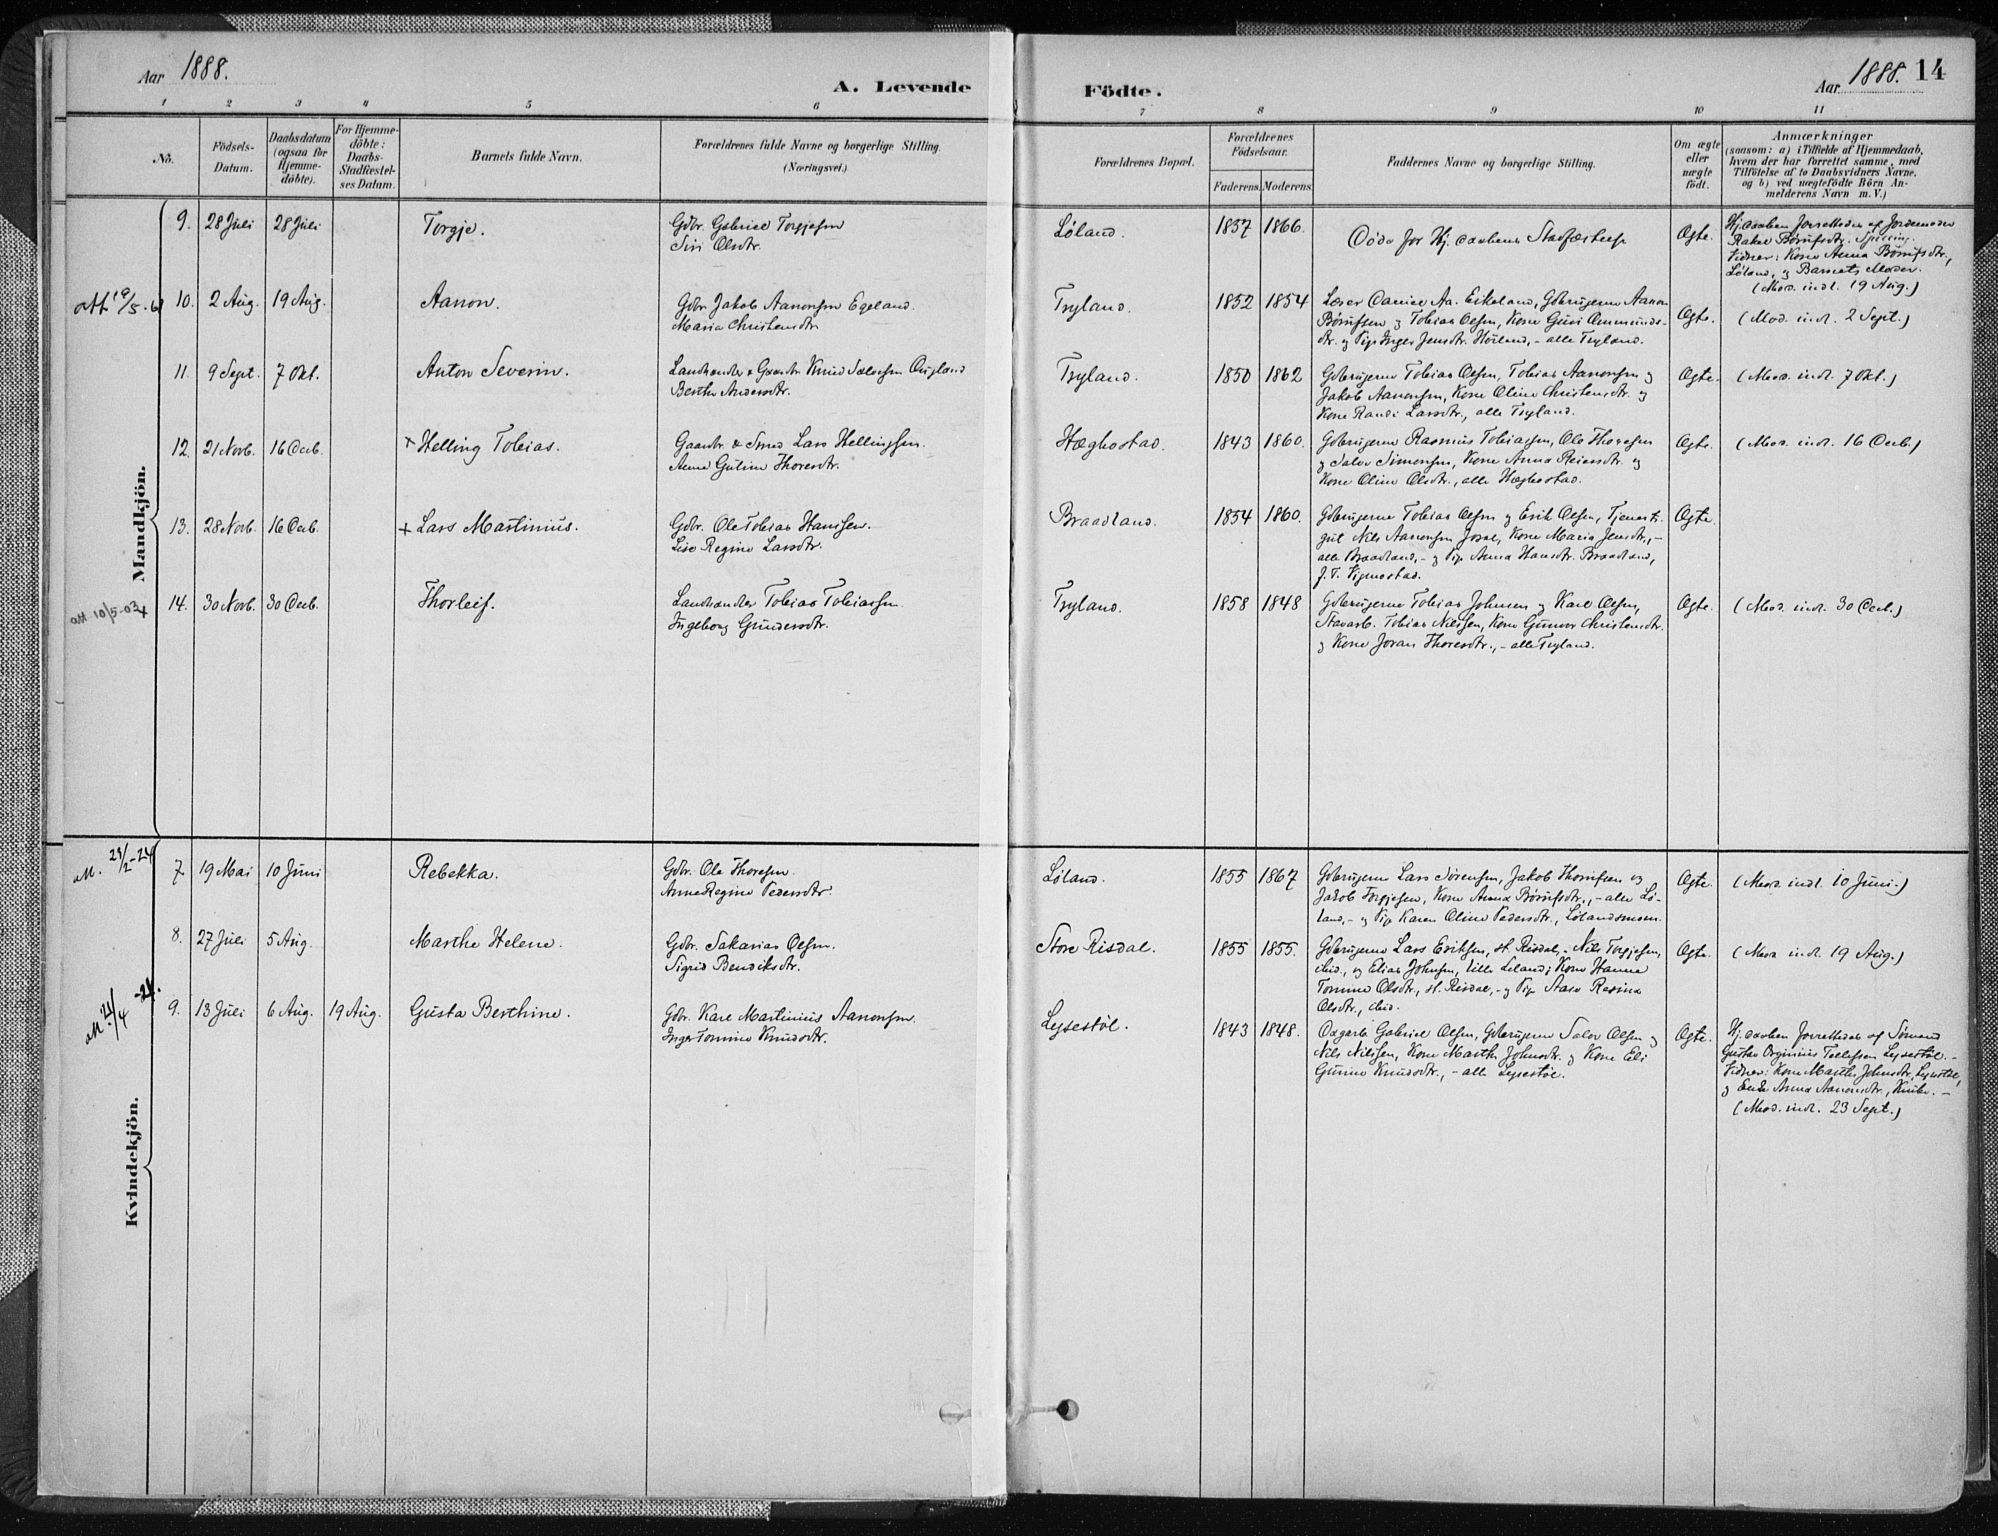 Aar 1888.
A. Levende
Födte.
Aar 1888. 14
1 2 3 4 5 6 7 8 9 10 11
No.
Födsels-
Datum.
Daabsdatum
(ogsaa for
Hjemme-
döbte).
For Hjemme-
döbte:
Daabs-
Stadfæstel-
ses Datum.
Barnets fulde Navn.
Forældrenes fulde Navne og borgerlige Stilling
(Næringsvei.)
Forældrenes Bopæl.
Forældrenes
Födselsaar.
Faderens. Moderens.
Faddernes Navne og borgerlige Stilling.
Om ægte
eller
uægte
födt.
Anmærkninger
(saasom: a) i Tilfælde af Hjemmedaab,
hvem der har forrettet samme, med
Tilföielse af to Daabsvidners Navne,
og b) ved uægtefödte Börn An-
melderens Navn m. V.)
Mandkjön.
9. 28 Juli 28 Juli Torgje.
Gdbr. Gabriel Torgjesen
Siri Olsdtr.
Løland. 1857 1866.
Døde før Hj. daabens Stadfæstelse
Ægte.
Hj. daaben forrettedes af Jordemoder
Rakel Børufsdtr.
Vidner: Kone Anna Børufsdtr.,
Løland, og Barnets Moder.
(Mod. indl. 19 Aug.)
att 19/5-
10. 2 Aug. 19 Aug. Aanon.
Gdbr. Jakob Aanonsen Egeland
Maria Christensdtr.
Tryland. 1852 1854
Læser Daniel Aa. Eikeland, Gdbrugerne Aanon
Børufsen og Tobias Olsen, Kone Guri Ommunds-
dtr. og Pige Inger Jensdtr. Høiland, - alle Tryland.
Ægte. (Mod. indl. 2 Sept.)
11. 9 Sept. 7 Okt. Anton Severin.
Landhandler & Gaardbr. Knud Salvesen Øigland
Berthe Andersdtr.
Tryland. 1850 1862
Gdbrugerne Tobias Olsen, Tobias Aanonsen og
Jakob Aanonsen, Kone Oline Christensdtr. og
Kone Randi Larsdtr., alle Tryland.
Ægte. (Mod. indl. 7 Okt.)
12. 21 Novb. 16 Decb. × Helling Tobias.
Gaardbr. & Smed Lars Hellingsen.
Anne Gutine Thoresdtr.
Hægbostad. 1843 1860.
Gdbrugerne Rasmus Tobiassen, Ole Thoresen
og Salve Simonsen, Kone Anna Reiersdtr. og
Kone Oline Olsdtr., alle Hægbostad.
Ægte. (Mod. indl. 16 Decb.)
13. 28 Novb. 16 Decb. × Lars Martinius.
Gdbr. Ole Tobias Hanssen.
Lise Regine Larsdtr.
Braadland. 1854 1860.
Gdbrugerne Tobias Olsen og Erik Olsen, Tjeneste-
gut Nils Aanonsen Josdal, Kone Maria Jensdtr., -
alle Braadland, - og Pige Anna Hansdtr. Braadland,
f. T. Vigmostad.
Ægte.
att 10/5-03 ×
14. 30 Novb. 30 Decb. Thorleif.
Landhandler Tobias Tobiassen
Ingeborg Gundersdtr.
Tryland. 1858 1848
Gdbrugerne Tobias Johnsen og Karl Olsen,
Tobias Nilssen, Kone Gunvor Christensdtr.
og Kone Joran Thoresdtr., - alle Tryland.
Ægte. (Mod. indl. 30 Decb.)
Kvindekjön.
att. 29/2-24
7. 19 Mai 10 Juni Rebekka.
Gdbr. Ole Thoresen
Anne Regine Pedersdtr.
Løland. 1855 1867
Gdbrugerne Lars Sørensen, Jakob Thorufsen og
Jakob Torgjesen, Kone Anna Børufsdtr., - alle Lø-
land, - og Pige Karen Oline Pedersdtr., Lølandsmoen.
Ægte. (Mod. indl. 10 Juni.)
8. 27 Juli 5 Aug. Marthe Helene.
Gdbr. Sakarias Olsen
Sigrid Bendiksdtr.
Store Risdal. 1855 1855.
Gdbrugerne Lars Eriksen, st. Risdal, Nils Torgjesen,
ibid., og Elias Johnsen, lille Løland; Kone Hanne
Tomine Olsdtr., st. Risdal, - og Pige Aase Rasine
Olsdtr., ibid.
Ægte. (Mod. indl. 19 Aug.)
att. 21/4-24.
9. 13 Juli 6 Aug. 19 Aug. Gusta Berthine.
Gdbr. Karl Martinius Aanonsen
Inger Tomine Knudsdtr.
Lysestøl. 1843 1848.
Dagarb. Gabriel Olsen, Gdbrugerne Salve Olsen og
Nils Nilssen, Kone Marthe Johnsdtr. og Kone Eli
Gurine Knudsdtr., - alle Lysestøl.
Ægte.
Hj. daaben forrettedes af Sømand
Gustav Tollefsen Lysestøl. -
Vidner: Kone Marthe Johnsdtr., Lysestøl,
og Enke Anna Aanonsdtr., -
(Mod. indl. 23 Sept.)